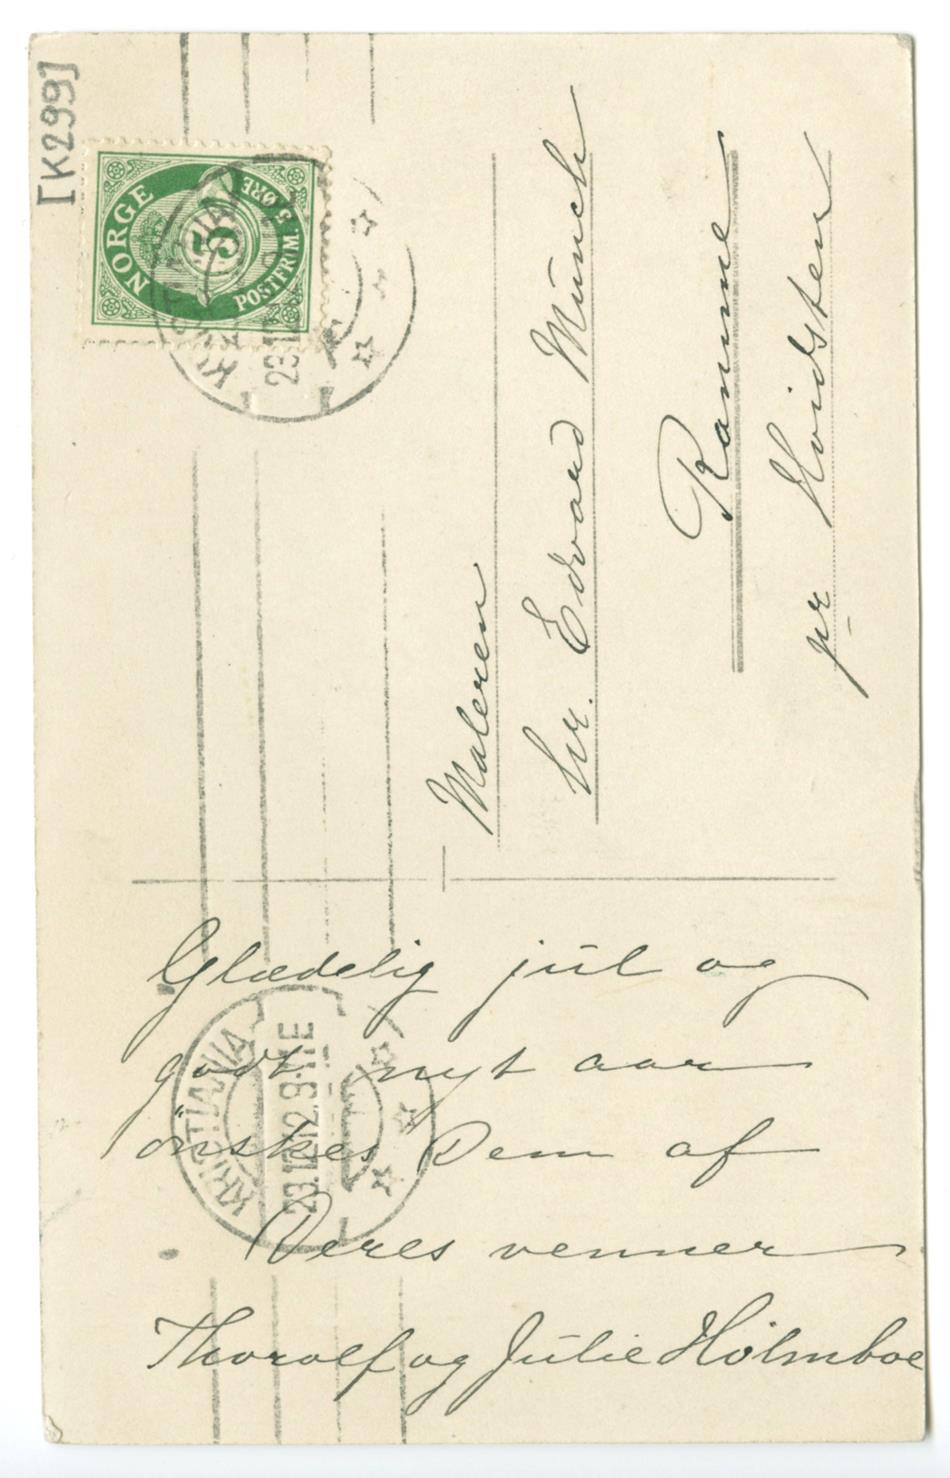 [K299]
NORGE
5
POSTFRIM. 5 ØRE
KRISTIANIA
Maleren
hr. Edvard Munch
Ramme
pr Hvidsten
Glædelig jul og
godt nyt aar
ønskes Dem af
Deres venner
Thorolf og Julie Holmboe
KRISTIANIA
23.12.12.9-11E